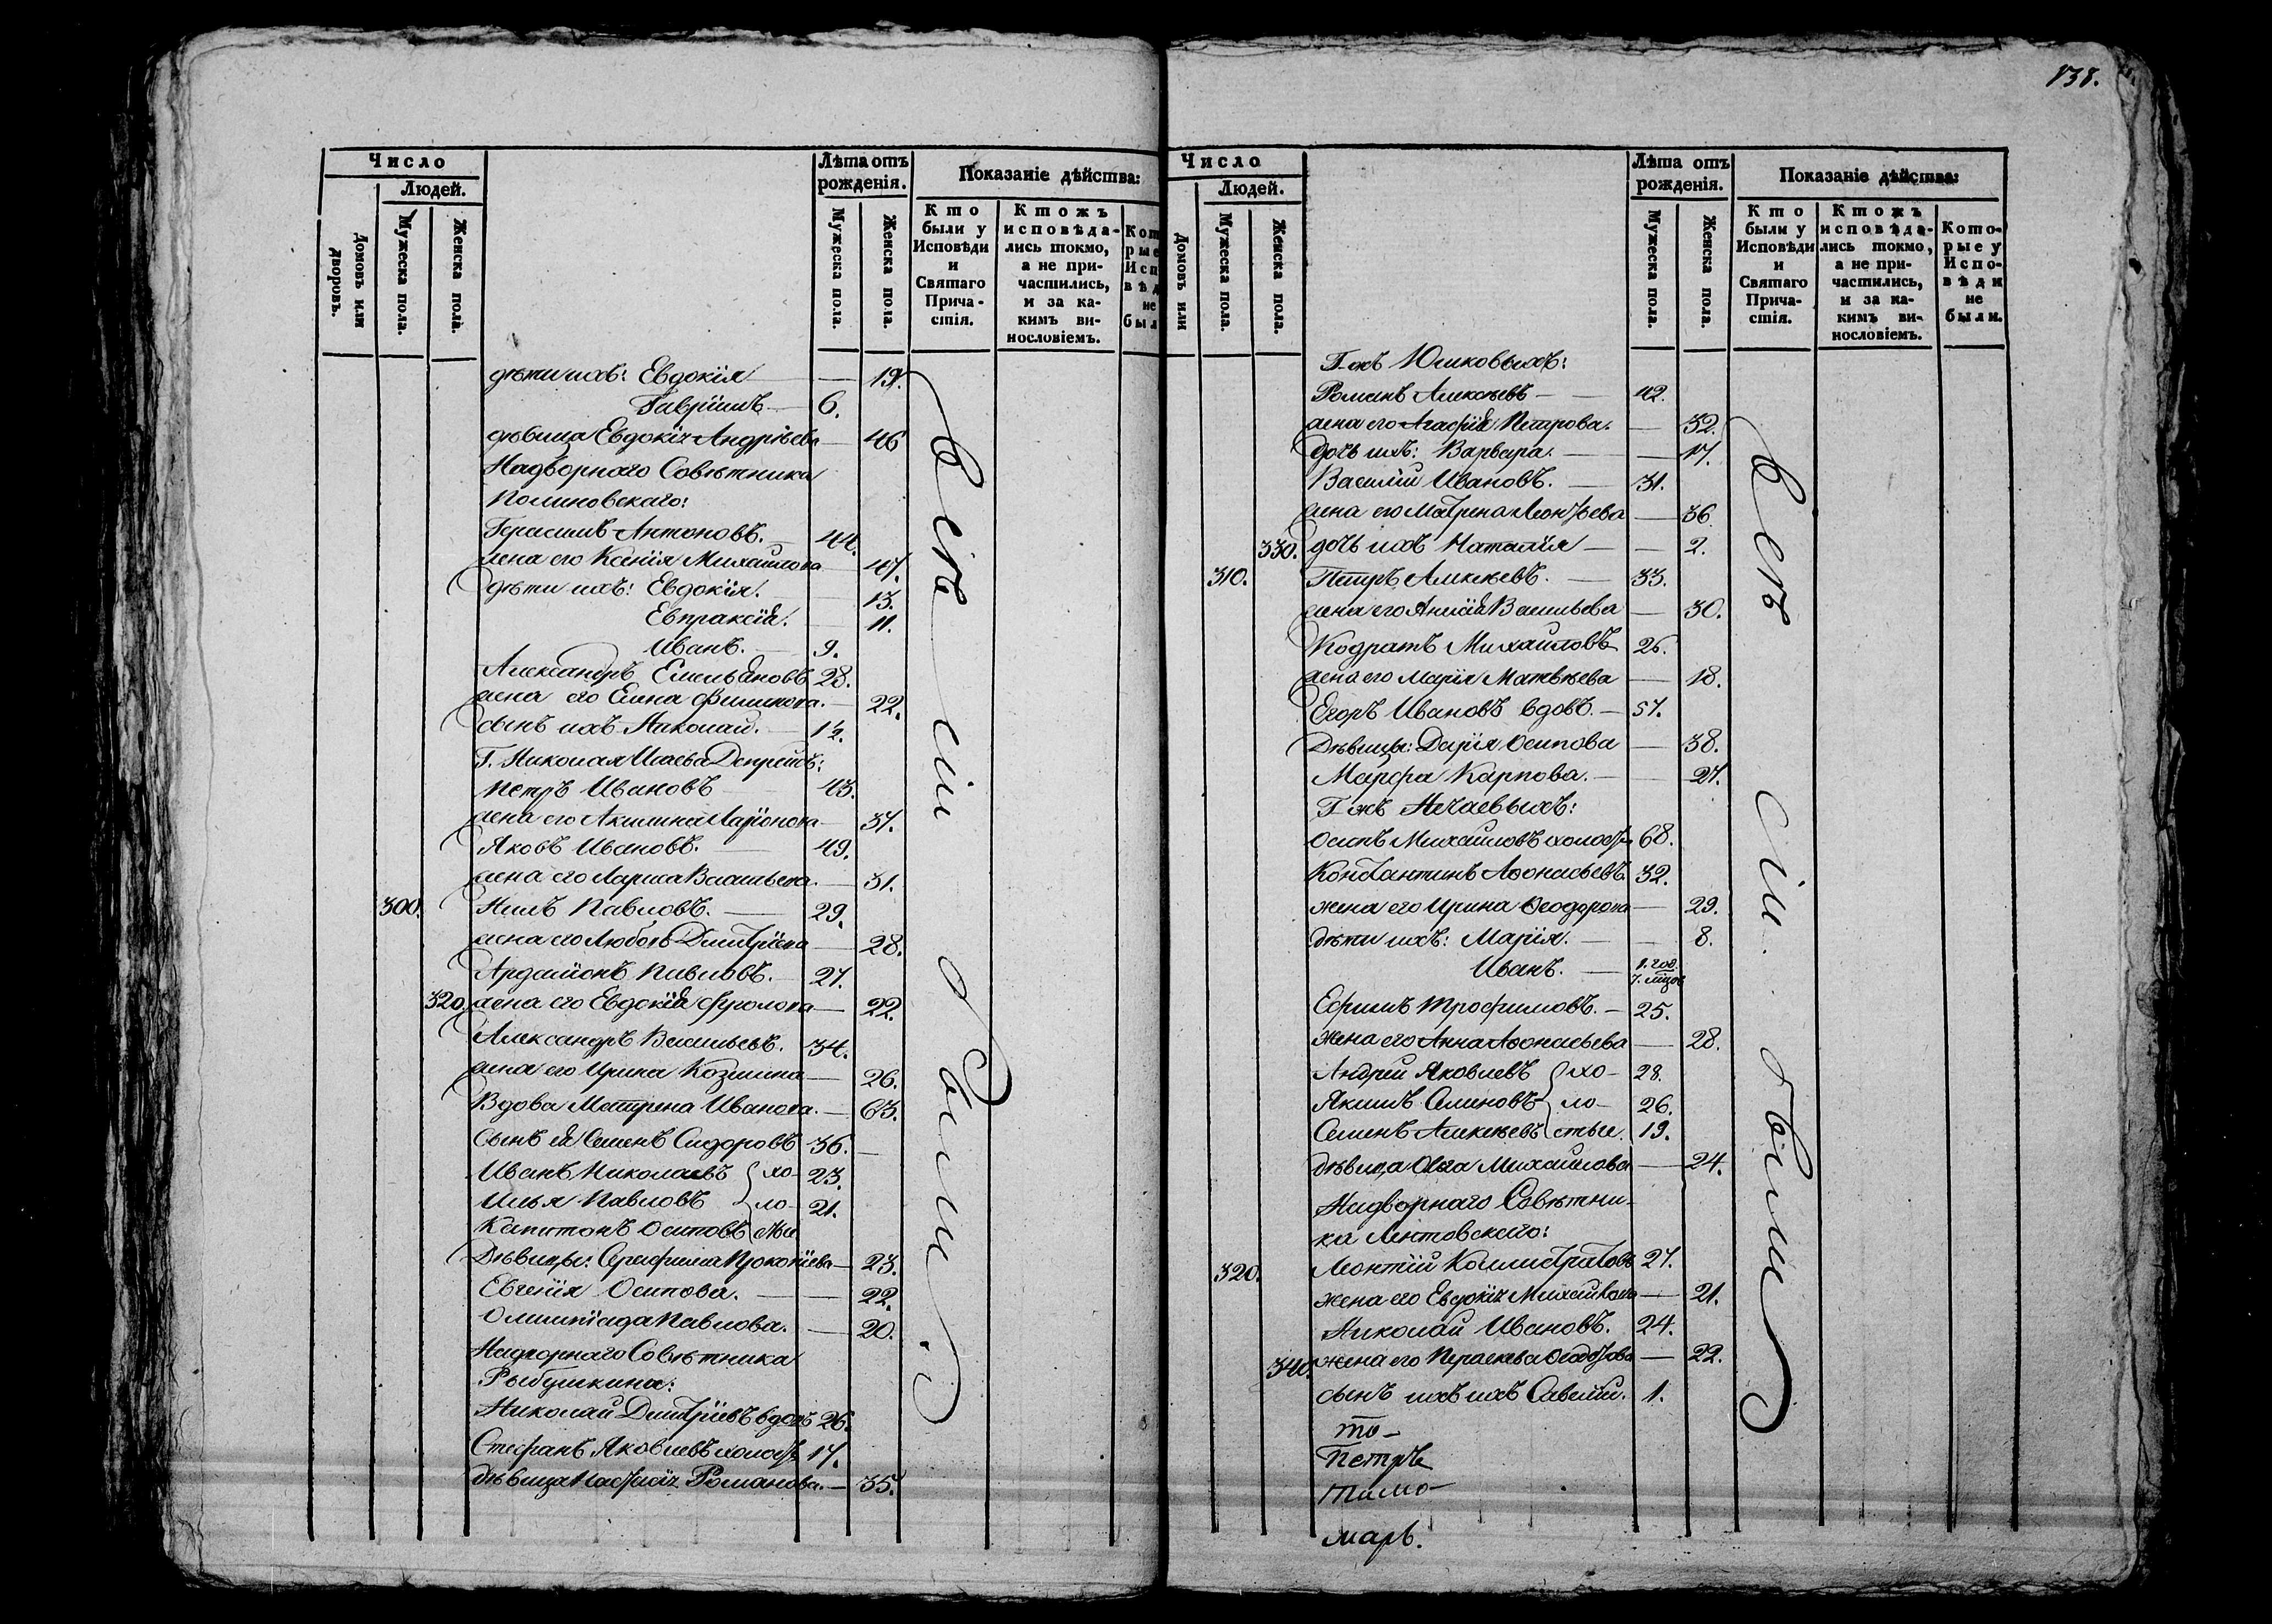 138.
Число
Людей.
Домовъ или дворовъ.
Мужеска пола.
Женска пола.
Лѣта отъ рожденія.
Мужеска пола.
Женска пола.
Показаніе дѣйства:
Кто были у Исповѣди и Святаго Прича-стія.
Ктожъ исповѣда-лись токмо, а не при-частились, и за ка-кимъ ви-нословіемъ.
дѣти ихъ: Евдокія — 19.
Гавріилъ — 6.
дѣвица Евдокія Андрѣева — 46
Надворнаго Совѣтника
Полиновскаго:
Герасимъ Антоновъ. — 44.
жена его Ксенія Михайлова 47.
дѣти ихъ: Евдокія. — 13.
Евпраксія. 11.
Иванъ. — 9.
Александръ Емельяновъ 28.
жена его Елена Филипова. — 22.
сынъ ихъ Николай. — 1½.
Г. Николая Исаева
Петръ Ивановъ 43.
жена его Акилина Ларіонова — 37.
Яковъ Ивановъ. 49.
жена его Лариса Васильева. — 31.
300. Нилъ Павловъ. — 29.
жена его Любовь Дмитріева — 28.
Ардаліонъ Павловъ. — 27.
320. жена его Евдокія Фролова — 22.
Александръ Васильевъ. 34.
жена его Ирина Козмина — 26.
Вдова Матрена Иванова. — 63.
Сынъ ея Семенъ Сидоровъ 36. —
Иванъ Николаевъ хо- 23.
Илья Павловъ ло- 21.
Капитонъ Осиповъ стые
Дѣвицы: Серафима Прокопіева — 23.
Евгенія Осипова. — 22.
Олимпіада Павлова. — 20.
Надворнаго Совѣтника
Рыбушкина:
Николай Дмитріевъ вдовъ 26.
Стефанъ Яковлевъ холостъ 17.
дѣвица Настасія Романова. — 35.
Всѣ сіи были.
Число
Людей.
Домовъ или
Мужеска пола.
Женска пола.
Лѣта отъ рожденія.
Мужеска пола.
Женска пола.
Показаніе дѣйства:
Кто были у Исповѣди и Святаго Прича-стія.
Ктожъ исповѣда-лись токмо, а не при-частились, и за ка-кимъ ви-нословіемъ.
Кото-рые у Испо-вѣди не были.
Г-жъ Юшковыхъ:
Романъ Алексѣевъ — 42.
жена его Агафія Петрова. — 32.
дочь ихъ: Варвара. — 17.
Василій Ивановъ. — 31.
жена его Матрена Леонтьева — 36.
330. дочь ихъ Наталія — 2.
310. Петръ Алексѣевъ. — 33.
жена его Анисія Васильева — 30.
Кодратъ Михайловъ 26.
жена его Марія Матвѣева — 18.
Егоръ Ивановъ вдовъ. — 57.
Дѣвицы: Дарія Осипова — 38.
Марфа Карпова. — 27.
Г-жъ Нечаевыхъ:
Осипъ Михайловъ холостъ 68.
Константинъ Аѳонасьевъ. 32.
жена его Ирина Ѳеодорова — 29.
дѣти ихъ: Марія. — 8.
Иванъ. — 1. год. 7. мѣцов
Ефимъ Трофимовъ. — 25.
жена его Анна Аѳонасьева — 28.
Андрей Яковлевъ хо- 28.
Якимъ Семеновъ ло- 26.
Семенъ Алексѣевъ стые. 19.
дѣвица Ольга Михайлова — 24.
Надворнаго Совѣтни-
ка Лентовскаго:
320. Леонтій Каллистратовъ 27.
жена его Евдокія Михайлова — 21.
Николай Ивановъ. 24.
340. жена его Параскева Ѳедотова — 22.
сынъ ихъ ихъ Савелій. 1.
то-
Петръ
Тимо-
марь.
Всѣ сіи были